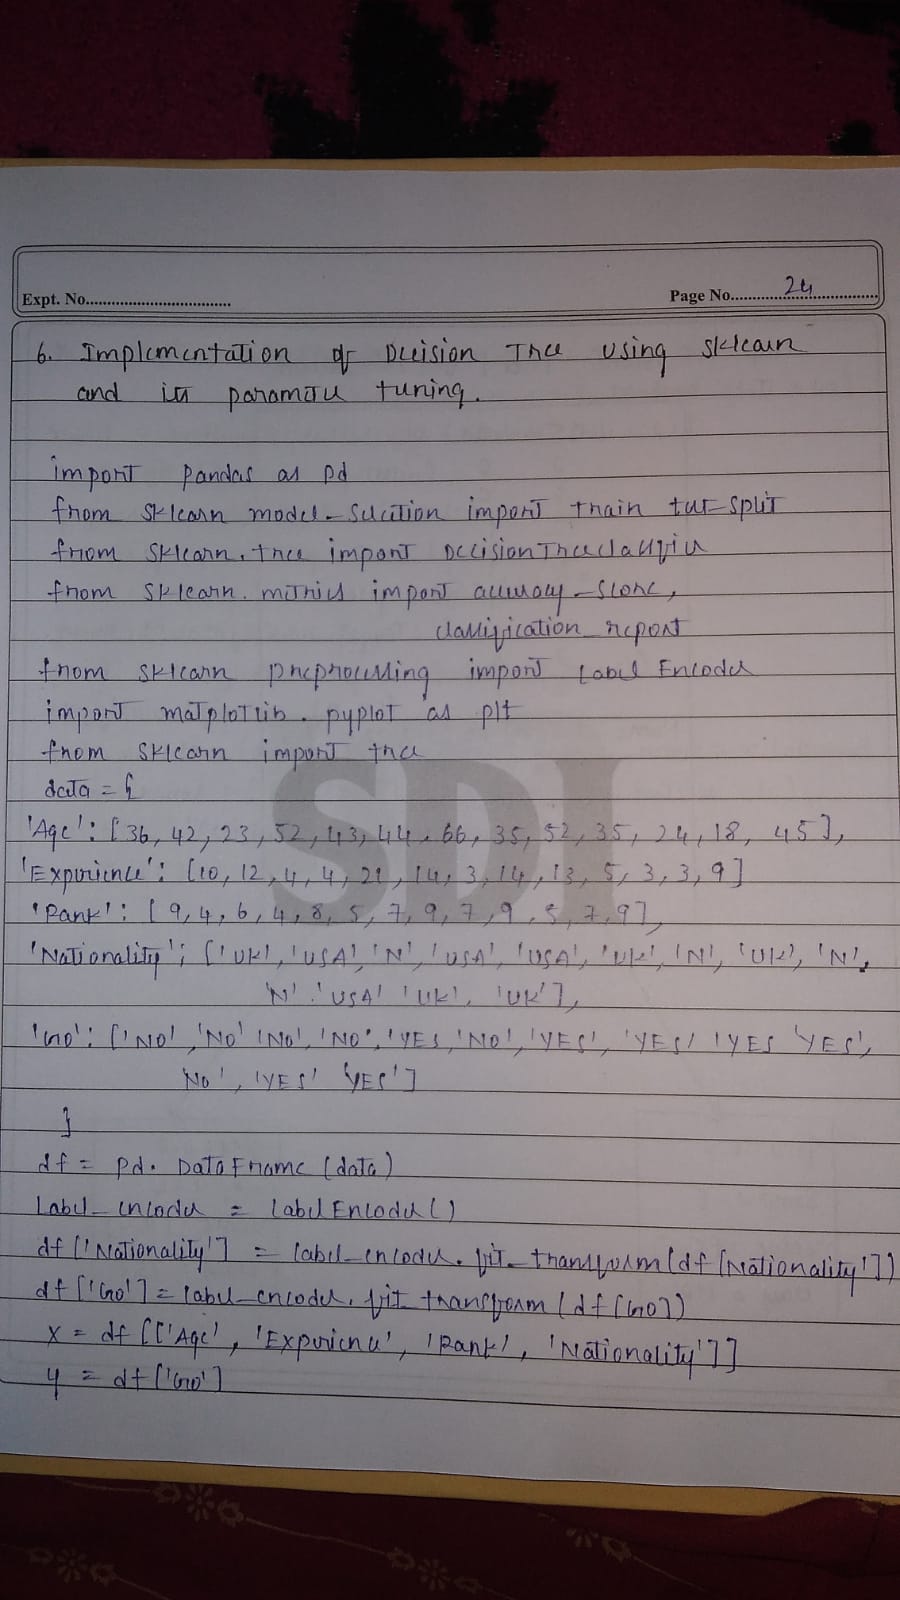 Expt. No.................................
Page No.......24.......
6. Implementation of Decision Tree using Sklearn
and its parameter tuning.
import pandas as pd
from sklearn model_selection import train test_split
from sklearn.tree import DecisionTreeClassifier
from sklearn.metrics import accuracy_score,
classification_report
from sklearn preprocessing import Label Encoder
import matplotlib.pyplot as plt
from sklearn import tree
data = {
'Age': [36, 42, 23, 52, 43, 44, 66, 35, 52, 35, 24, 18, 45],
'Experience': [10, 12, 4, 4, 21, 14, 3, 14, 13, 5, 3, 3, 9]
'Rank': [9, 4, 6, 4, 8, 5, 7, 9, 7, 9, 5, 7, 9],
'Nationality': ['UK', 'USA', 'N', 'USA', 'USA', 'UK', 'N', 'UK', 'N',
'N', 'USA' 'UK', 'UK'],
'Go': ['NO', 'NO' 'NO', 'NO', 'YES, 'NO', 'YES', 'YES' 'YES 'YES',
'NO', 'YES' 'YES']
}
df = pd. DataFrame (data)
Label_encoder = LabelEncoder()
df ['Nationality'] = label_encoder.fit_transform(df [Nationality'])
df ['Go'] = label_encoder.fit_transform (df [Go])
X = df [['Age', 'Experience', 'Rank', 'Nationality']]
y = df ['Go']
SDI